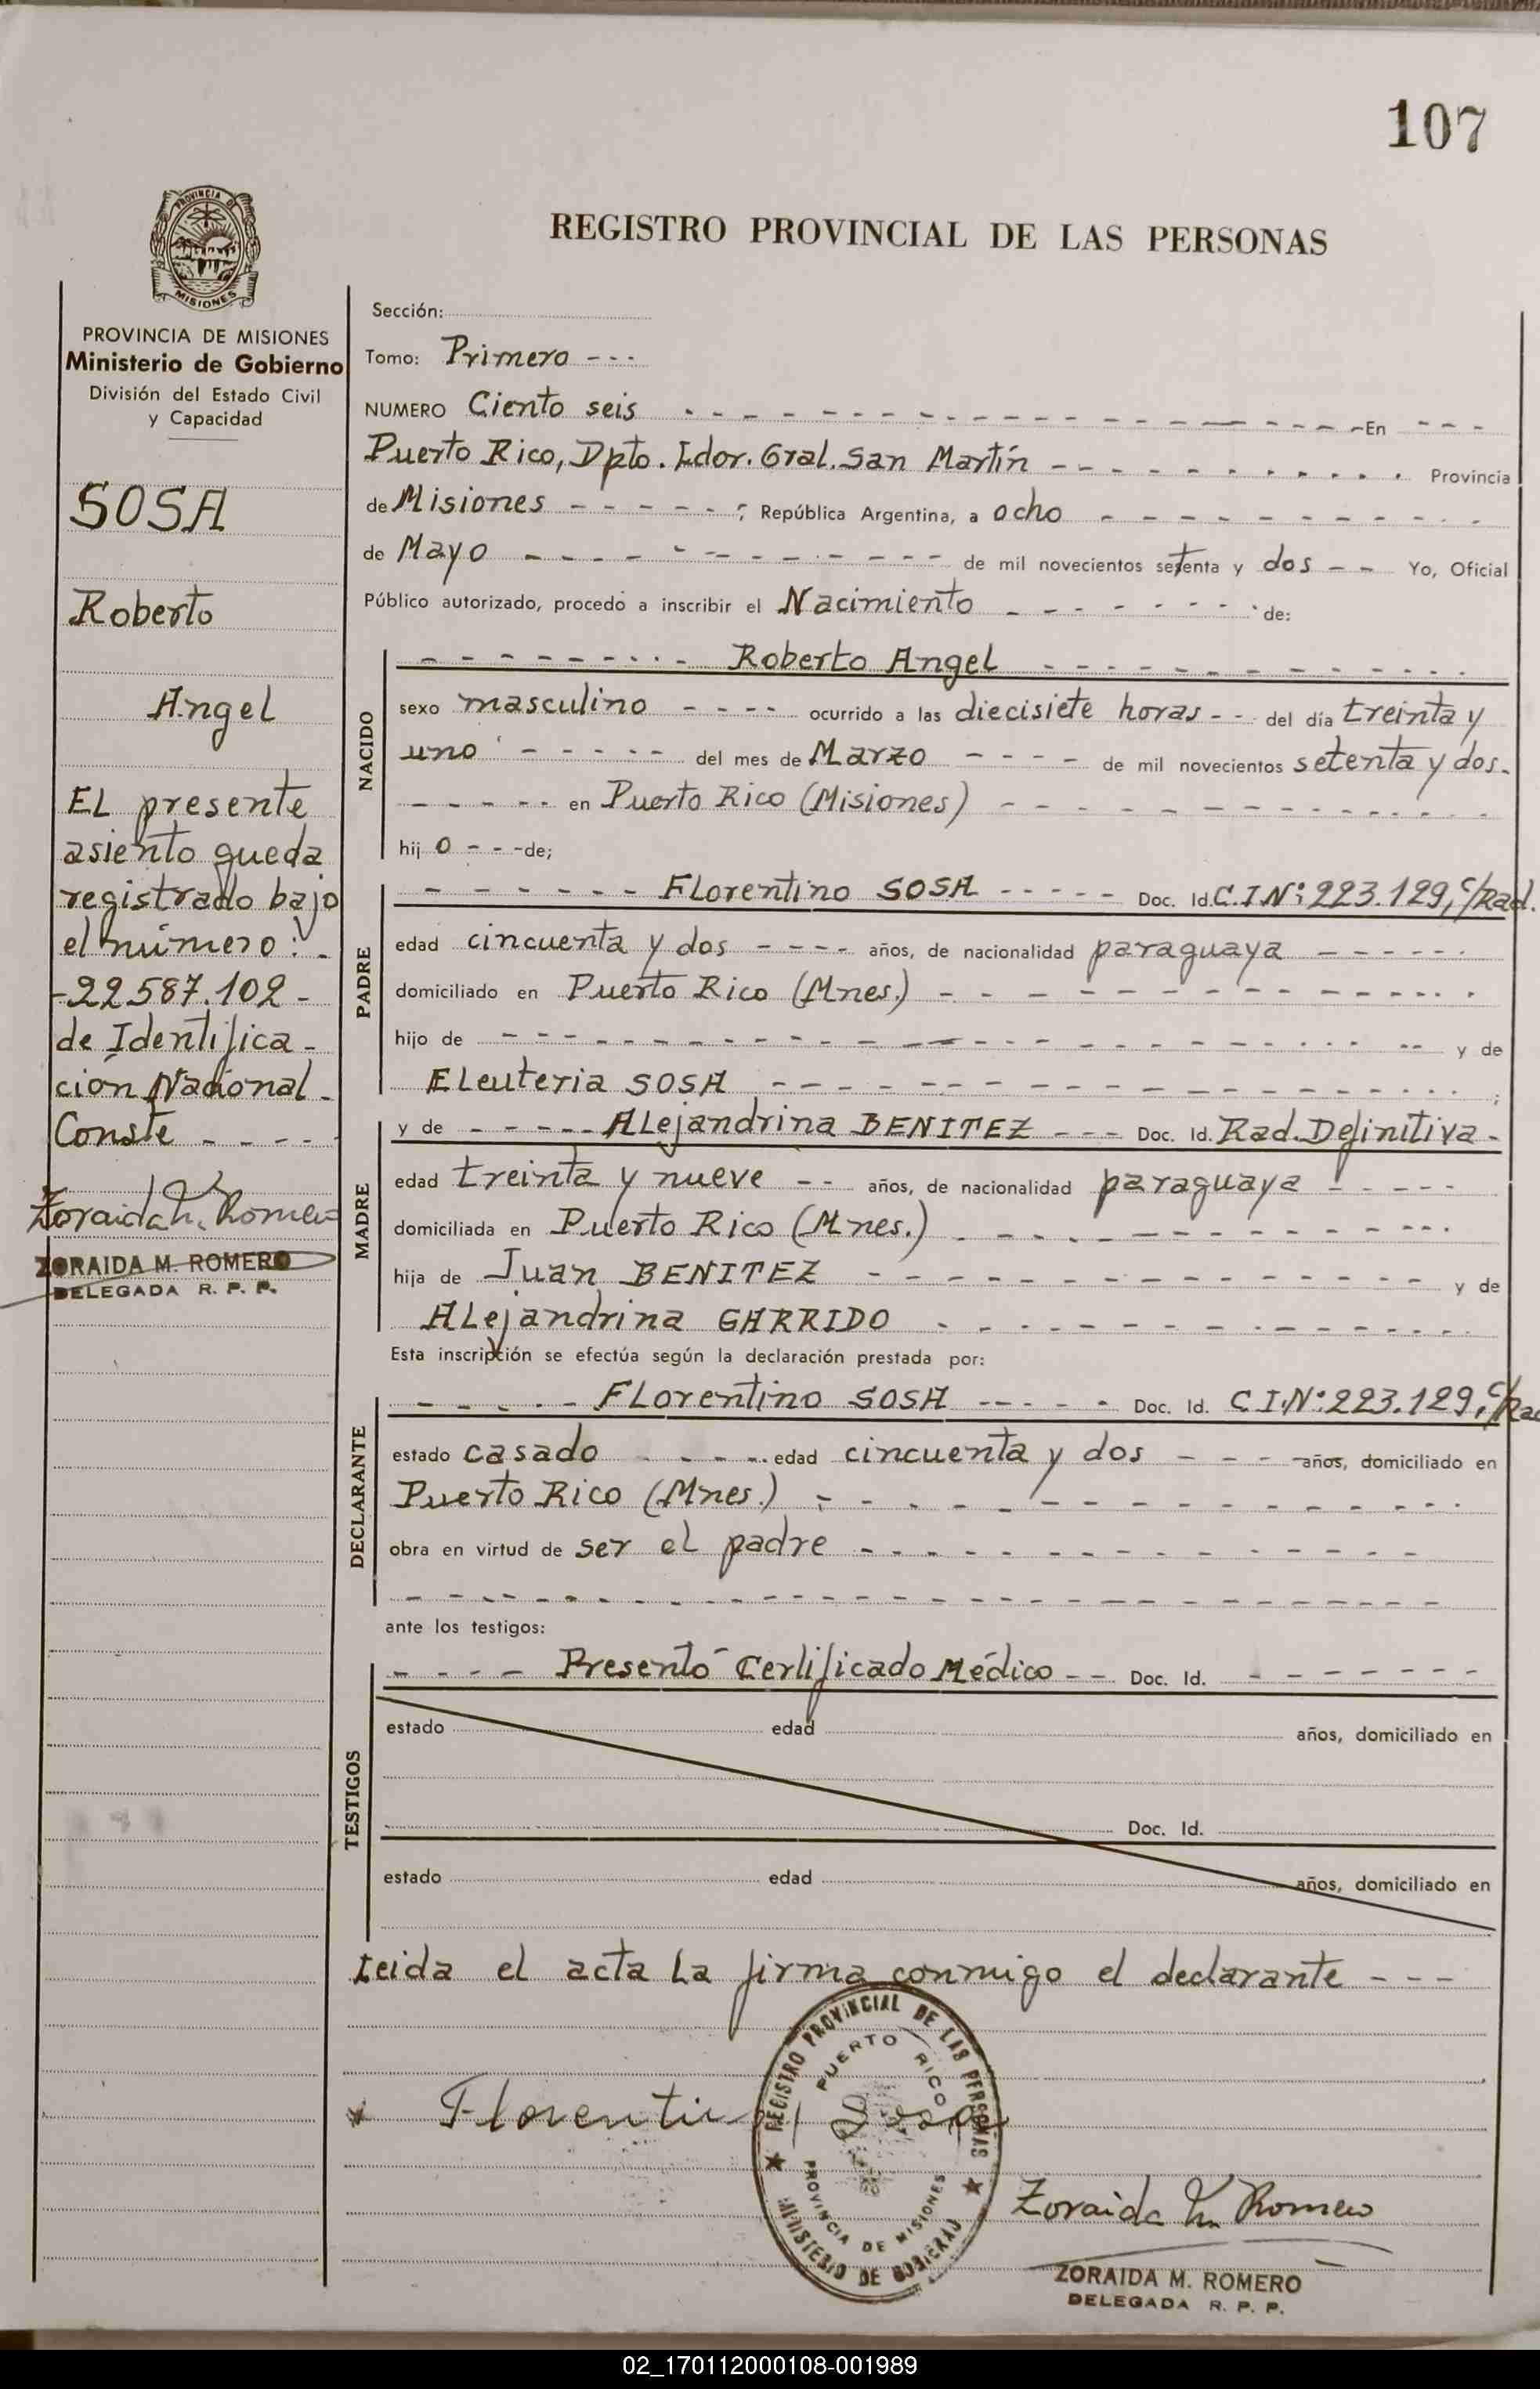 107
PROVINCIA DE
MISIONES
REGISTRO PROVINCIAL DE LAS PERSONAS
PROVINCIA DE MISIONES
Ministerio de Gobierno
División del Estado Civil
y Capacidad
SOSA
Roberto
Angel
EL presente
asiento queda
registrado bajo
el número:-
-22587.102-
de Identifica-
ción Nacional-
Conste - - - -
Zoraida M. Romero
ZORAIDA M. ROMERO
DELEGADA R. P. P.
Sección:
Tomo: Primero ---
NUMERO Ciento seis - - - En - - -
Puerto Rico, Dpto. Ldor. Gral. San Martín - - - Provincia
de Misiones - - - - - -; República Argentina, a ocho - - -
de Mayo - - - de mil novecientos setenta y dos - - Yo, Oficial
Público autorizado, procedo a inscribir el Nacimiento - - - de:
NACIDO
- - - Roberto Angel - - -
sexo masculino - - - - ocurrido a las diecisiete horas - - del día treinta y
uno - - - del mes de Marzo - - - - de mil novecientos setenta y dos.
- - - en Puerto Rico (Misiones) - - -
hij o - - - de;
PADRE
- - - Florentino SOSA - - - - - Doc. Id. C.I.Nº:223.129, c/Rad.
edad cincuenta y dos - - - - años, de nacionalidad paraguaya - - -
domiciliado en Puerto Rico (Mnes.) - - -
hijo de - - - y de
Eleuteria SOSA - - - ;
MADRE
y de - - - - - Alejandrina BENITEZ - - - Doc. Id. Rad. Definitiva -
edad treinta y nueve - - años, de nacionalidad paraguaya - - - - -
domiciliada en Puerto Rico (Mnes.) - - -
hija de Juan BENITEZ - - - y de
Alejandrina GARRIDO - - -
Esta inscripción se efectúa según la declaración prestada por:
DECLARANTE
- - - - - Florentino SOSA - - - - - Doc. Id. C.I.Nº:223.129, c/Rad
estado casado - - - - - edad cincuenta y dos - - - - años, domiciliado en
Puerto Rico (Mnes.) - - -
obra en virtud de ser el padre - - -
- - -
ante los testigos:
TESTIGOS
- - - - Presentó Certificado Médico - - Doc. Id. - - -
estado edad años, domiciliado en
Doc. Id.
estado edad años, domiciliado en
Leida el acta la firma conmigo el declarante - - -
REGISTRO PROVINCIAL DE LAS PERSONAS
PUERTO RICO
PROVINCIA DE MISIONES
MINISTERIO DE GOBIERNO
Florentino Sosa
Zoraida M. Romero
ZORAIDA M. ROMERO
DELEGADA R. P. P.
02_170112000108-001989